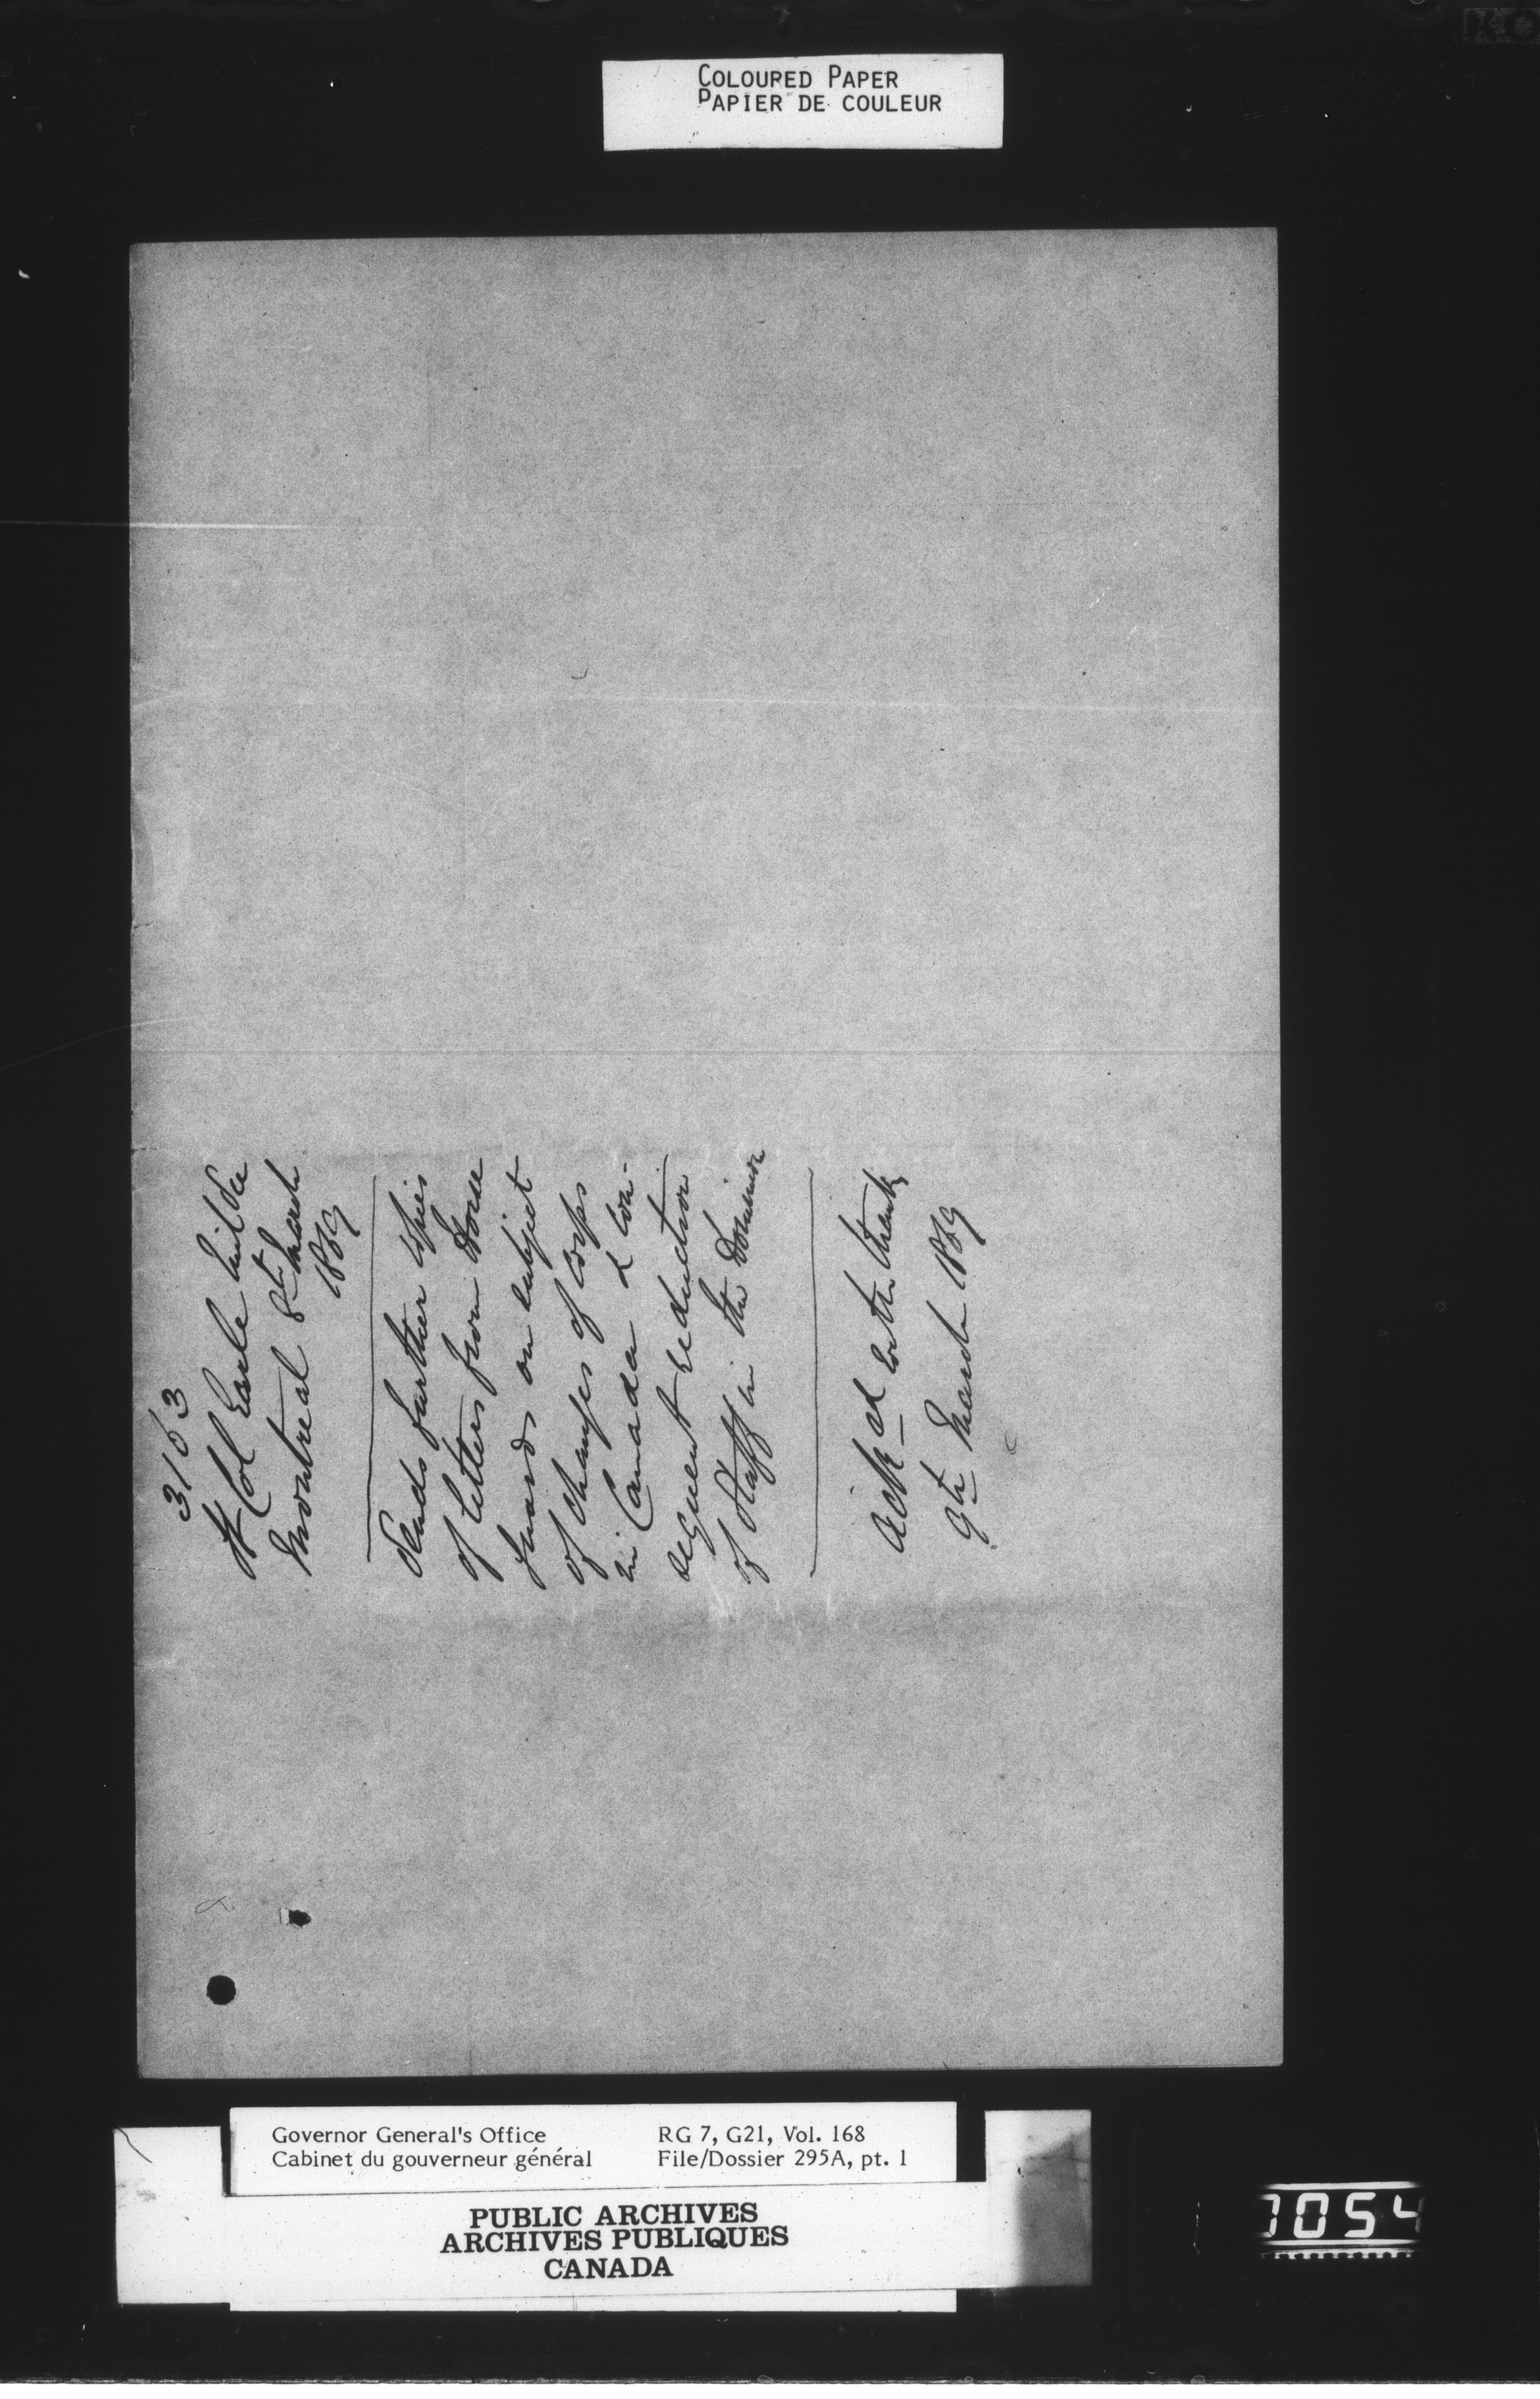 COLOURED PAPER
PAPIER DE COULEUR
3163
Lt Col Earle Mil Sec
Montreal 8th March
1869
Sends further copies
of letters from Horse
Guards on subject
of changes of Corps
in Canada & con-
sequent reduction
of Staff in the Dominion
Ack-ed with thanks
9th March 1869
Governor General's Office
Cabinet du gouverneur général
RG 7, G21, Vol. 168
File/Dossier 295A, pt. 1
PUBLIC ARCHIVES
ARCHIVES PUBLIQUES
CANADA
1054